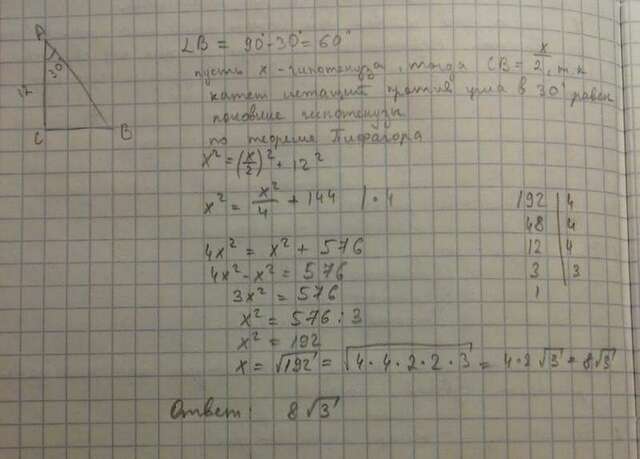 A
30°
C
B
∠B = 90° - 30° = 60°
пусть x - гипотенуза, тогда CB = x/2, т.к
катет лежащий против угла в 30° равен
половине гипотенузы
по теореме Пифагора
x² = (x/2)² + 12²
x² = x²/4 + 144 | · 4
4x² = x² + 576
4x² - x² = 576
3x² = 576
x² = 576 : 3
x² = 192
x = √192 = √4 · 4 · 2 · 2 · 3 = 4 · 2 √3 = 8√3
192 | 4
48 | 4
12 | 4
3 | 3
1
Ответ: 8√3